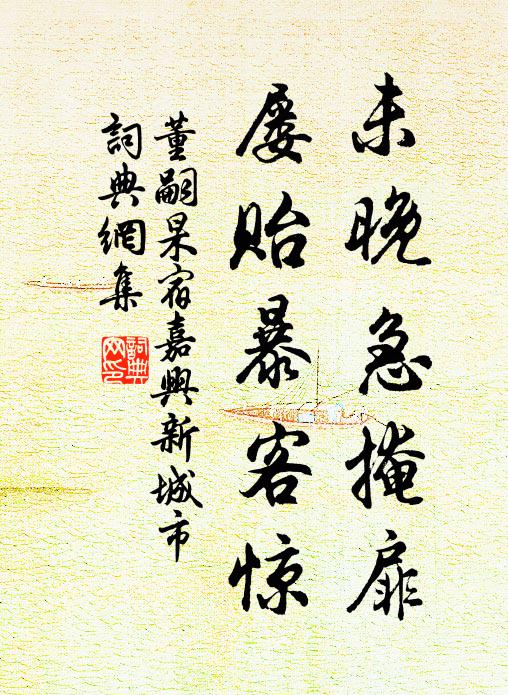 未晚急掩扉
屡贻暴客惊
董嗣杲宿嘉興新城市
詞典網集
詞典网印